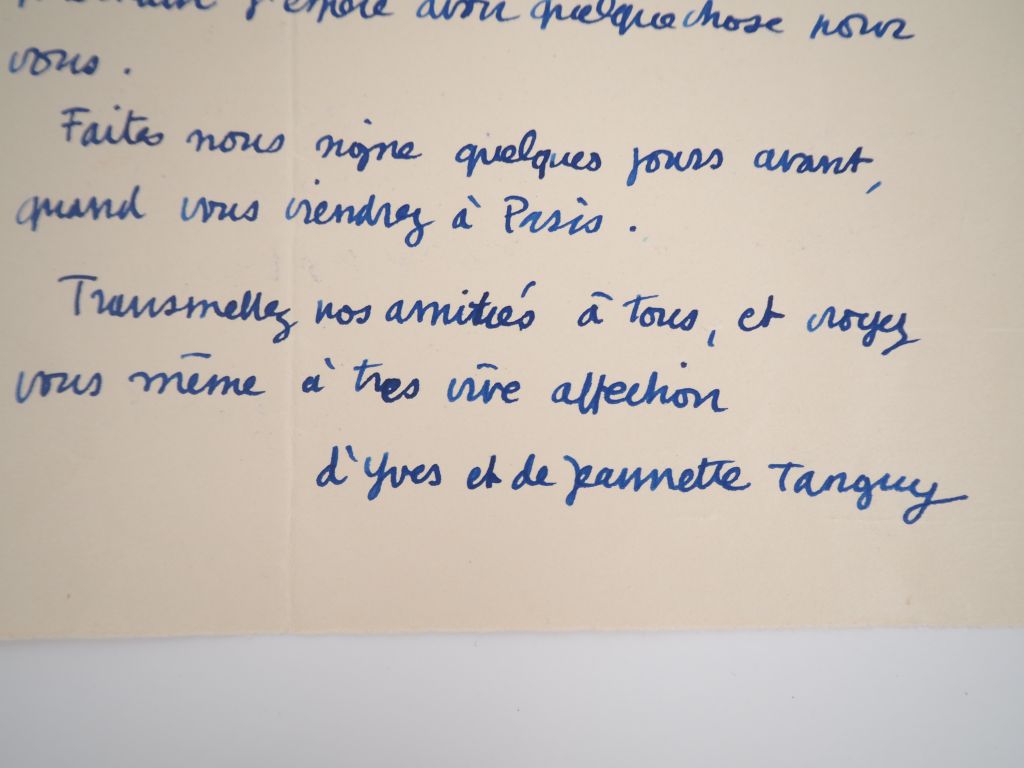 j'espère avoir quelquechose pour
vous.
Faites nous signe quelques jours avant,
quand vous viendrez à Paris.
Transmettez nos amitiés à tous, et croyez
vous même à tres vive affection
d'Yves et de Jeannette Tanguy